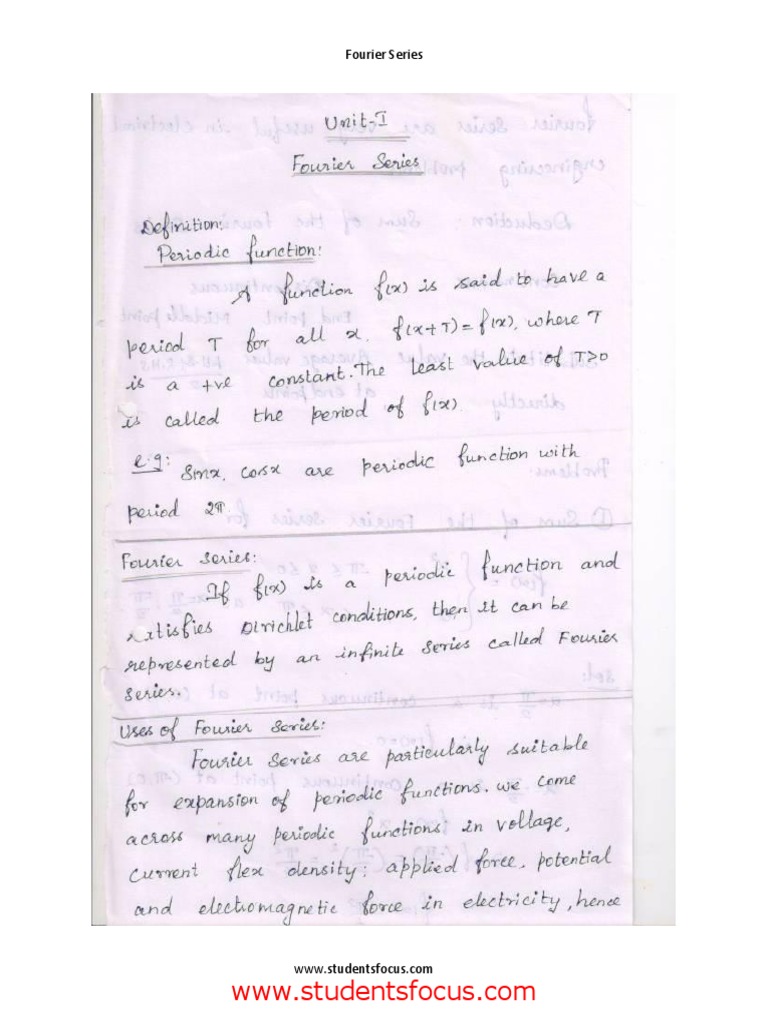 Fourier Series
Unit-I
Fourier Series
Definition:
Periodic function:
A function f(x) is said to have a
period T for all x, f(x+T)=f(x), where T
is a +ve constant. The least value of T>0
is called the period of f(x).
e.g: Sinx, cosx are periodic function with
period 2π.
Fourier series:
If f(x) is a periodic function and
satisfies Dirichlet conditions, then it can be
represented by an infinite series called Fourier
series.
Uses of Fourier Series:
Fourier Series are particularly suitable
for expansion of periodic functions. We come
across many periodic functions in voltage,
current flex density, applied force, potential
and electromagnetic force in electricity, hence
www.studentsfocus.com
www.studentsfocus.com